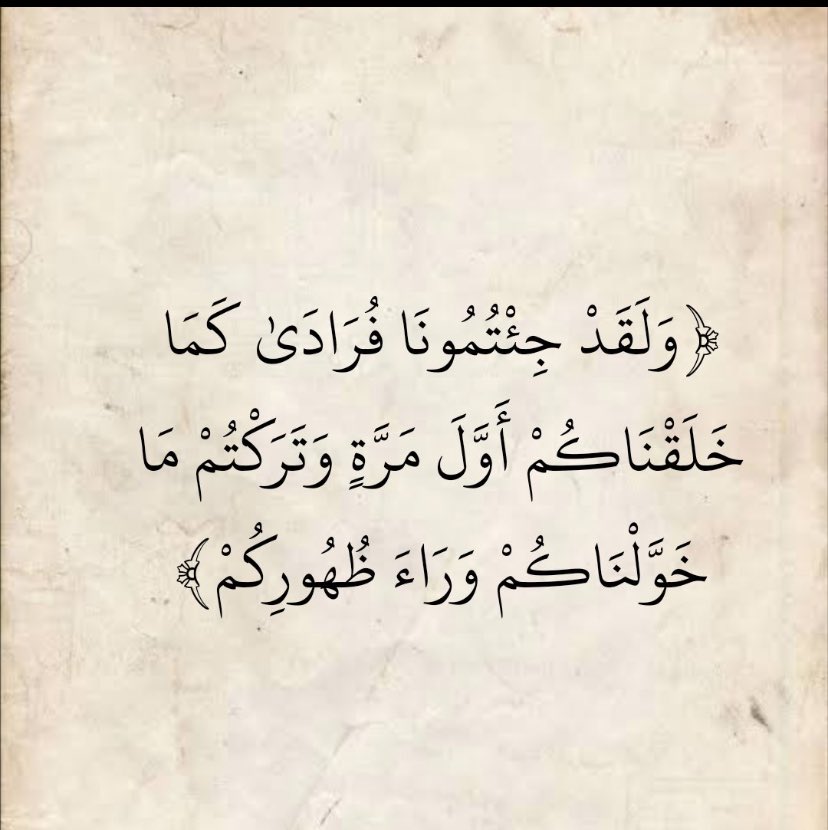 ﴿وَلَقَدْ جِئْتُمُونَا فُرَادَىٰ كَمَا
خَلَقْنَاكُمْ أَوَّلَ مَرَّةٍ وَتَرَكْتُمْ مَا
خَوَّلْنَاكُمْ وَرَاءَ ظُهُورِكُمْ﴾